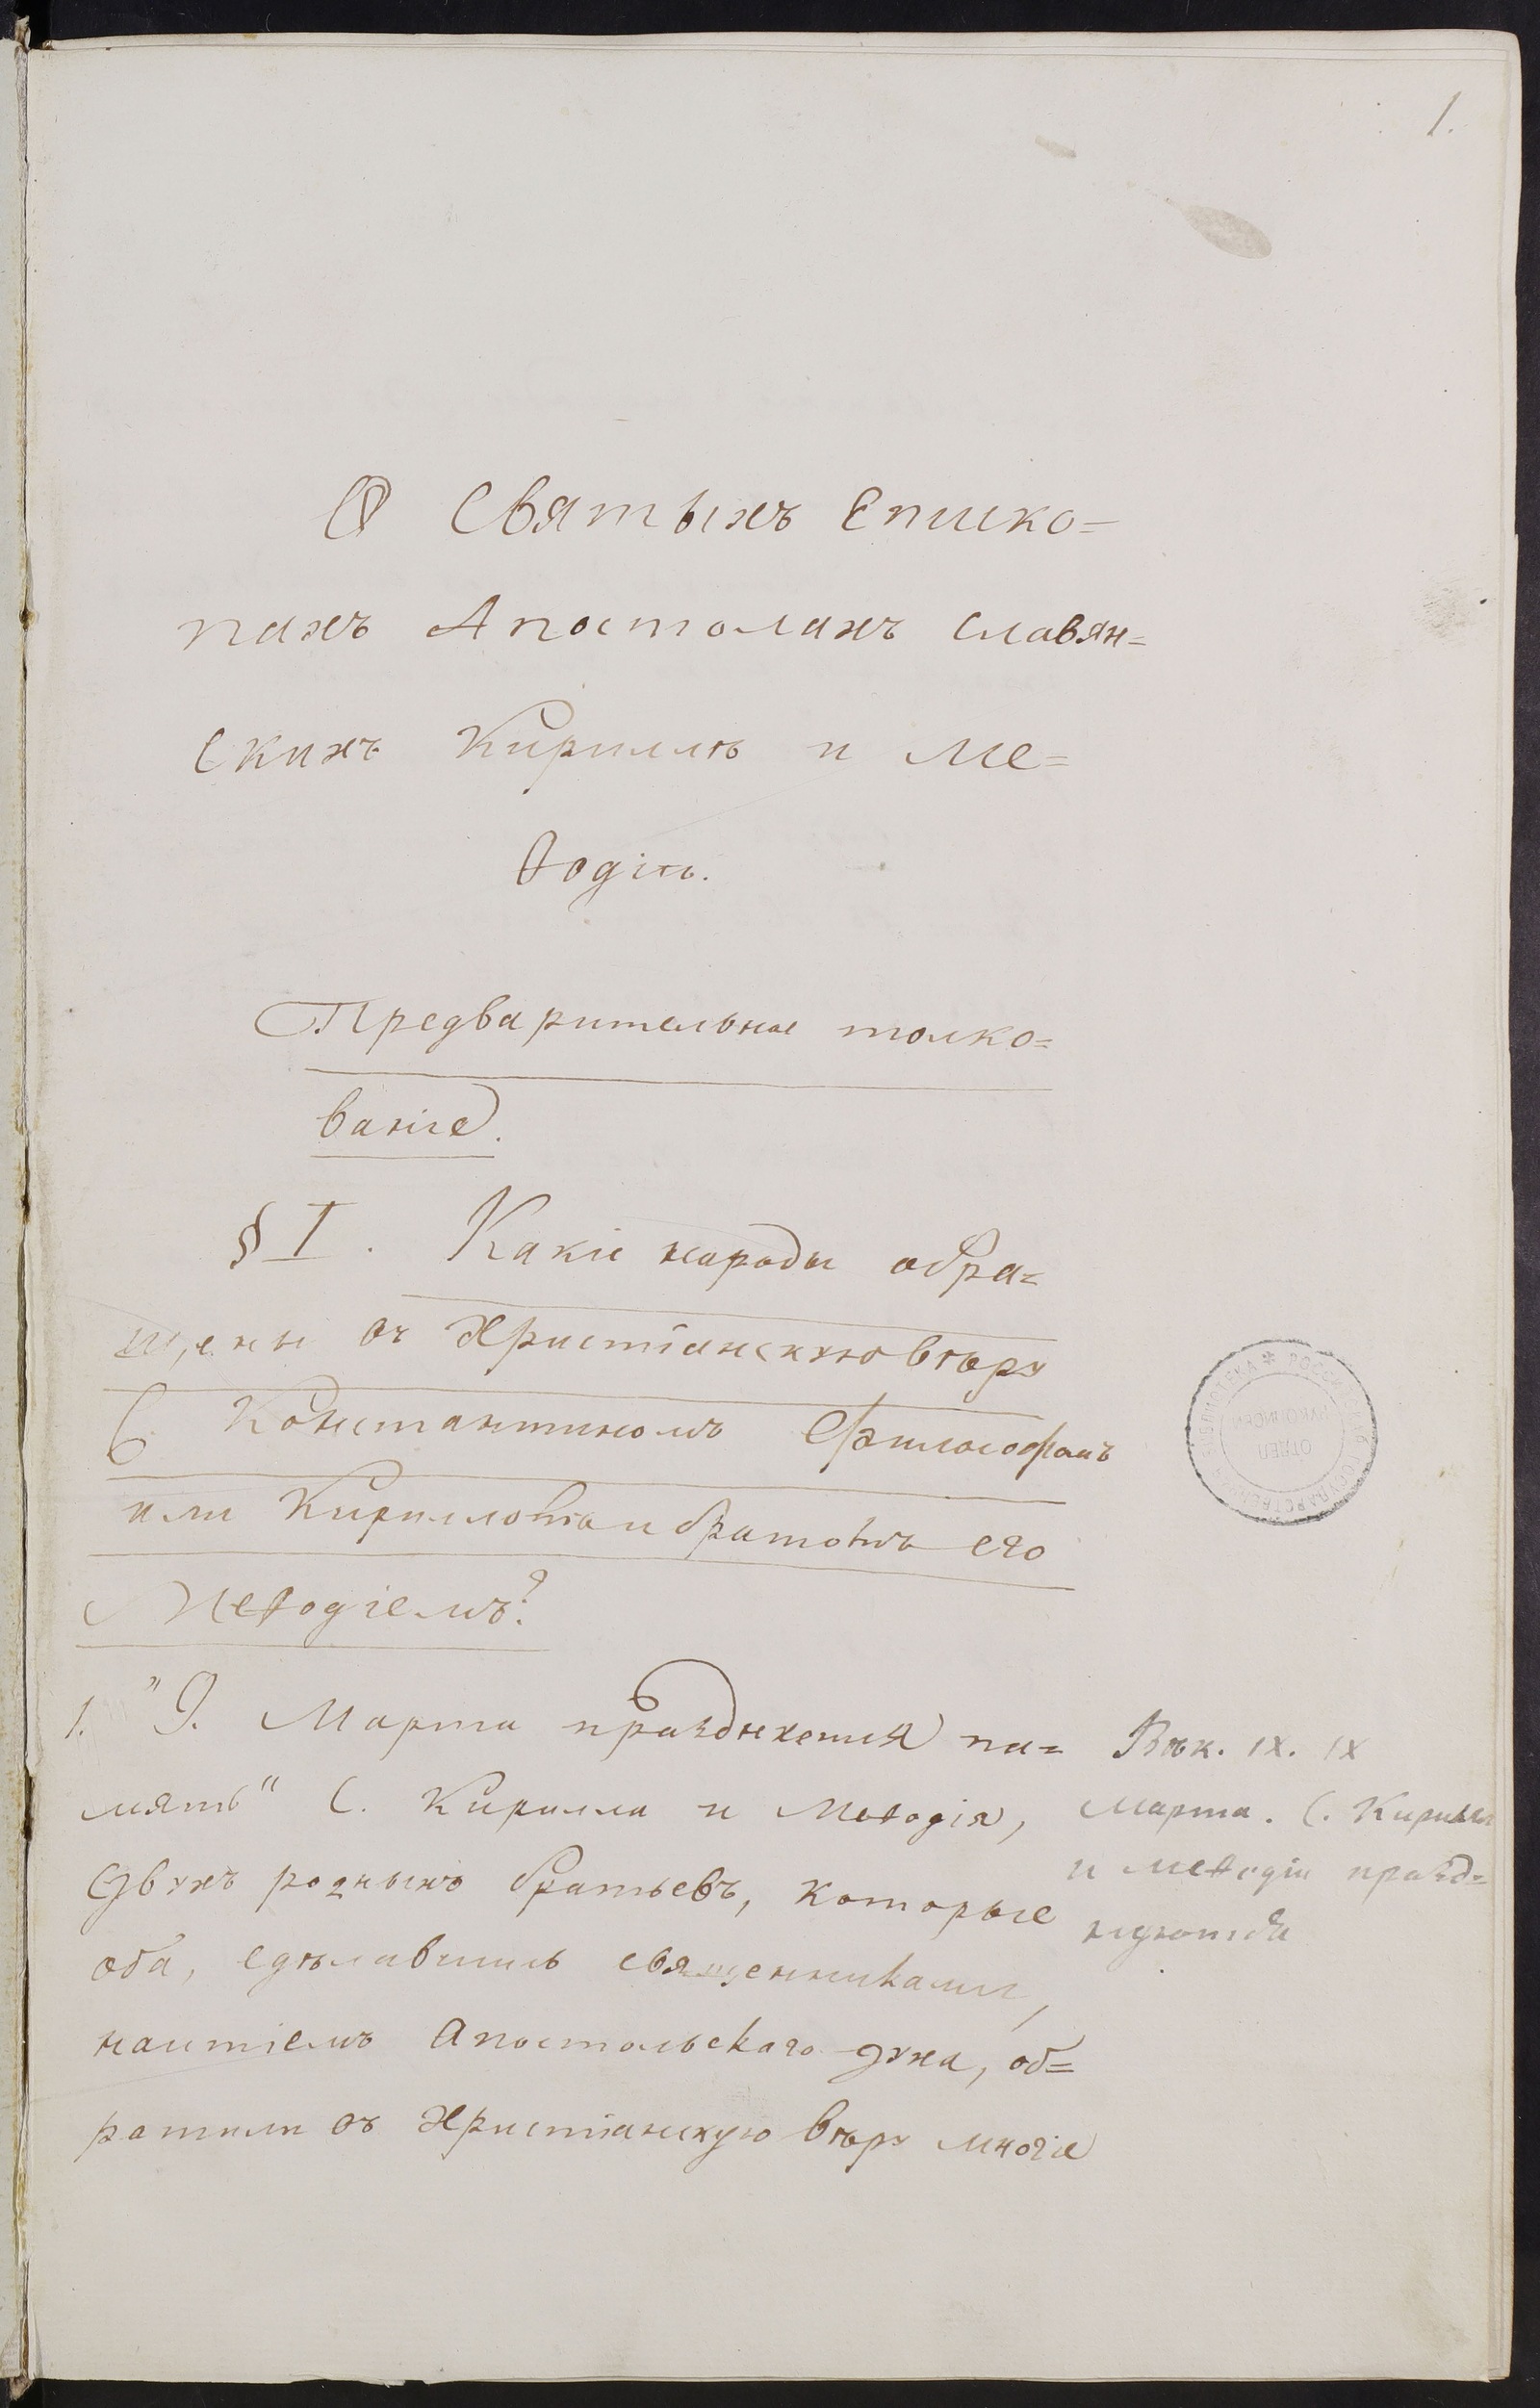 1.
О Святыхъ Еписко=
пахъ Апостолахъ Славян=
скихъ Кириллѣ и Ме=
ѳодіѣ.
Предварительное толко=
ваніе.
§ I. Какіе народы обра=
щены въ Христіанскую вѣру
С. Константиномъ Философомъ
или Кирилломъ и братомъ его
Меѳодіемъ?
1. "9. Марта празднуется па=
мять" С. Кирилла и Меѳодія,
двухъ родныхъ братьевъ, которые
оба, сдѣлавшись священниками,
наитіемъ Апостольскаго духа, об=
ратили въ Христіанскую вѣру многіе
Вѣк. IX. IX
Марта. С. Кирилл
и Меѳодіи празд=
нуются
РОССИЙСКАЯ ГОСУДАРСТВЕННАЯ БИБЛИОТЕКА *
ОТДЕЛ
РУКОПИСЕЙ